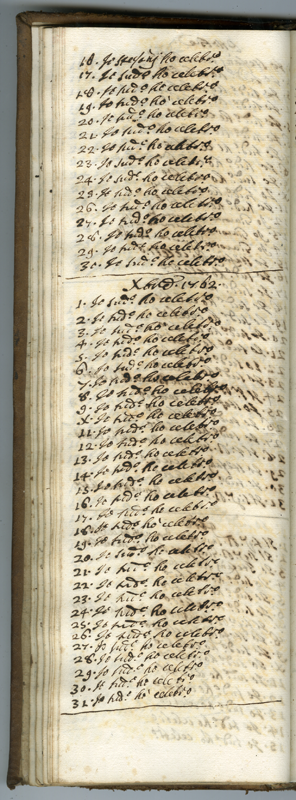 16. Io ho celebr.º
17. Io sud.º ho celebr.º
18. Io sud.º ho celebr.º
19. Io sud.º ho celebr.º
20. Io sud.º ho celebr.º
21. Io sud.º ho celebr.º
22. Io sud.º ho celebr.º
23. Io sud.º ho celebr.º
24. Io sud.º ho celebr.º
25. Io sud.º ho celebr.º
26. Io sud.º ho celebr.º
27. Io sud.º ho celebr.º
28. Io sud.º ho celebr.º
29. Io sud.º ho celebr.º
30. Io sud.º ho celebr.º
1762.
1. Io sud.º ho celebr.º
2. Io sud.º ho celebr.º
3. Io sud.º ho celebr.º
4. Io sud.º ho celebr.º
5. Io sud.º ho celebr.º
6. Io sud.º ho celebr.º
7. Io sud.º ho celebr.º
8. Io sud.º ho celebr.º
9. Io sud.º ho celebr.º
X. Io sud.º ho celebr.º
11. Io sud.º ho celebr.º
12. Io sud.º ho celebr.º
13. Io sud.º ho celebr.º
14. Io sud.º ho celebr.º
15. Io sud.º ho celebr.º
16. Io sud.º ho celebr.º
17. Io sud.º ho celebr.º
18. Io sud.º ho celebr.º
19. Io sud.º ho celebr.º
20. Io sud.º ho celebr.º
21. Io sud.º ho celebr.º
22. Io sud.º ho celebr.º
23. Io sud.º ho celebr.º
24. Io sud.º ho celebr.º
25. Io sud.º ho celebr.º
26. Io sud.º ho celebr.º
27. Io sud.º ho celebr.º
28. Io sud.º ho celebr.º
29. Io sud.º ho celebr.º
30. Io sud.º ho celebr.º
31. Io sud.º ho celebr.º